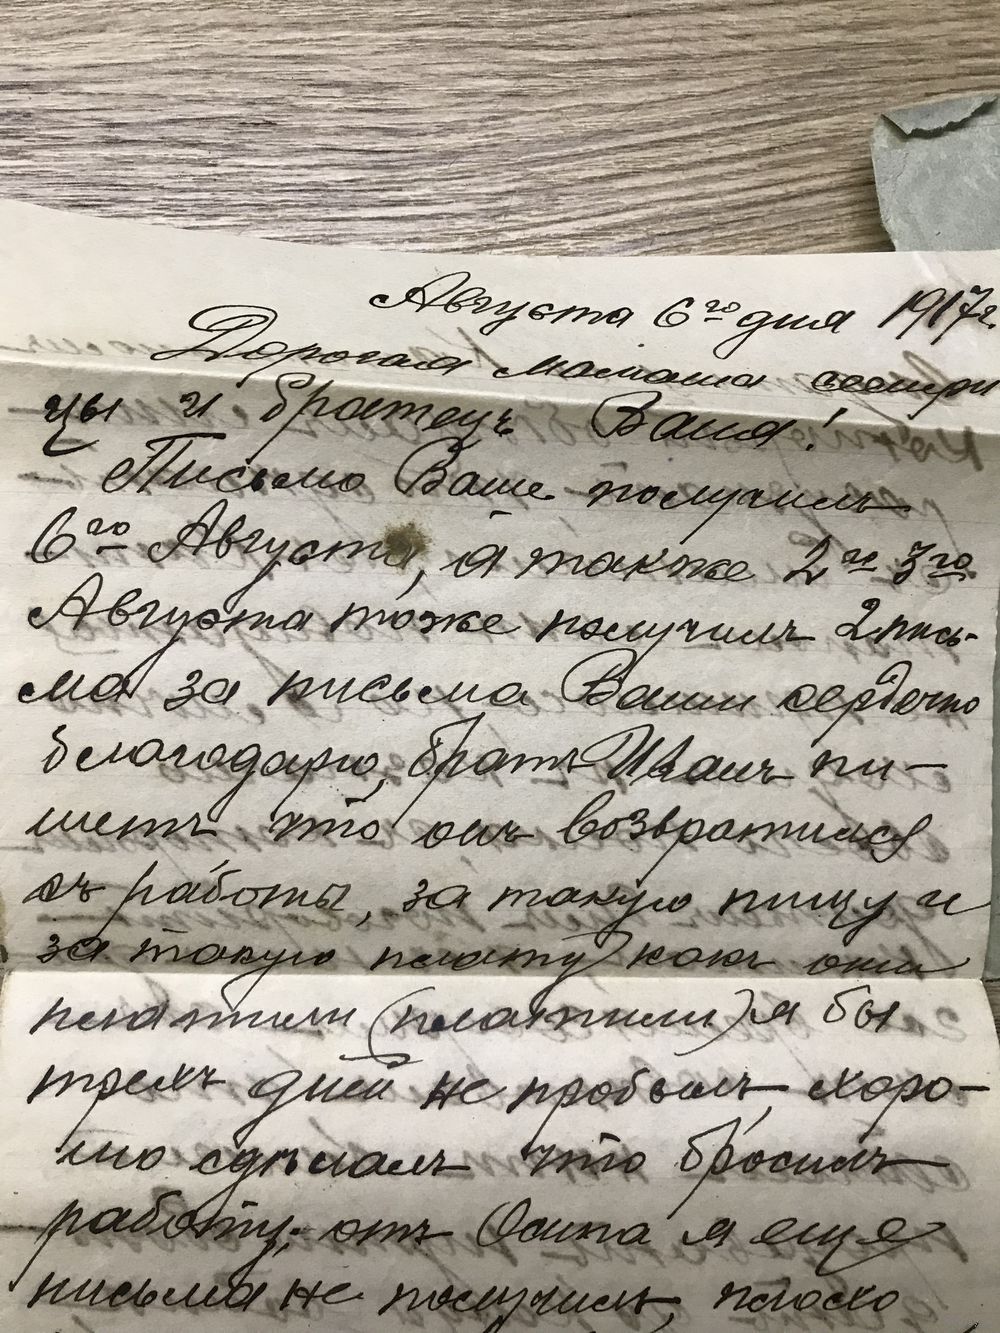 Августа 6го дня 1917г.
Дорогая мамаша сестри
цы и братецъ Ваня!
Письмо Ваше получилъ
6го Августа, а также 2 и 3го
Августа тоже получилъ 2 пись-
ма за письма Ваши сердечно
благодарю, братъ Иванъ пи-
шетъ что онъ возвратился
съ работы, за такую пищу и
за такую плату какъ они
платили (платили) я бы
трехъ дней не пробылъ, хоро-
шо сдѣлалъ что бросилъ
работу, отъ Осипа я еще
письма не получилъ, плохо